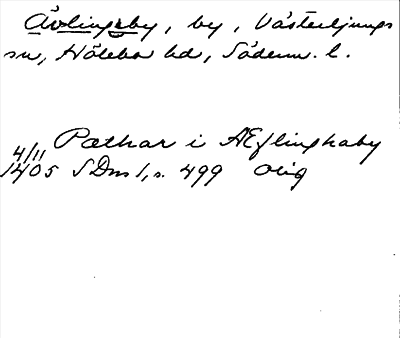 Ävlingeby, by, Västerljungs
sn, Hölebo hd, Söderm. l.
Pæthar i AEflinghaby
4/11
1405 SDns 1, s. 499 Orig